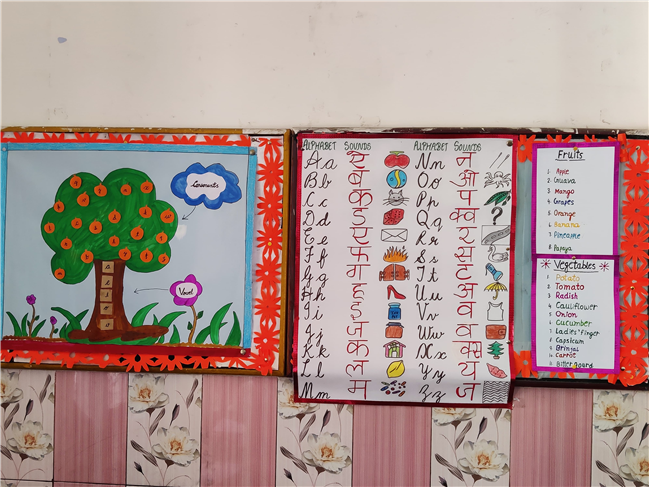 Consonants
Vowel
ALPHABET SOUNDS ALPHABET SOUNDS
Aa ए Nn न
Bb ब Oo ओ
Cc क Pp प
Dd ड Qq क्व
Ee ए Rr र
Ff फ Ss स
Gg ग Tt ट
Hh ह Uu अ
Ii इ Vv व
Jj ज Ww व
Kk क Xx क्स
Ll ल Yy य
Mm म Zz ज
Fruits
1. Apple
2. Guava
3. Mango
4. Grapes
5. Orange
6. Banana
7. Pineapple
8. Papaya
Vegetables
Potato
Tomato
Radish
Cauliflower
Onion
Cucumber
Ladies' finger
Capsicum
Brinjal
Carrot
Bitter gourd